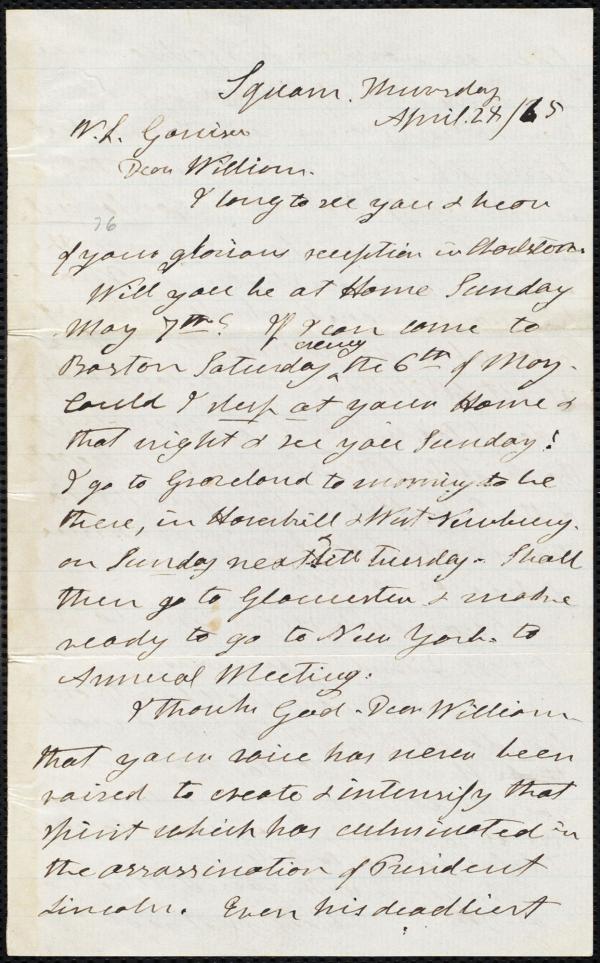 Squam. Thursday
April. 28/65
W. L. Garrison
Dear William.
I long to see you & hear
76
of your glorious reception in Charleston.
Will you be at Home Sunday
May 7th? If I can come to
evening
Boston Saturday ^ the 6th of May.
Could I sleep at your Home &
that night & see you Sunday!
I go to Groveland to morning to be
there, in Haverhill & West Newbury.
on Sunday next & till Tuesday. Shall
then go to Gloucester & make
ready to go to New York. to
Annual Meeting.
I thank God. Dear William
that your voice has never been
raised to create & intensify that
spirit which has culminated in
the assassination of President
Lincoln. Even his deadliest